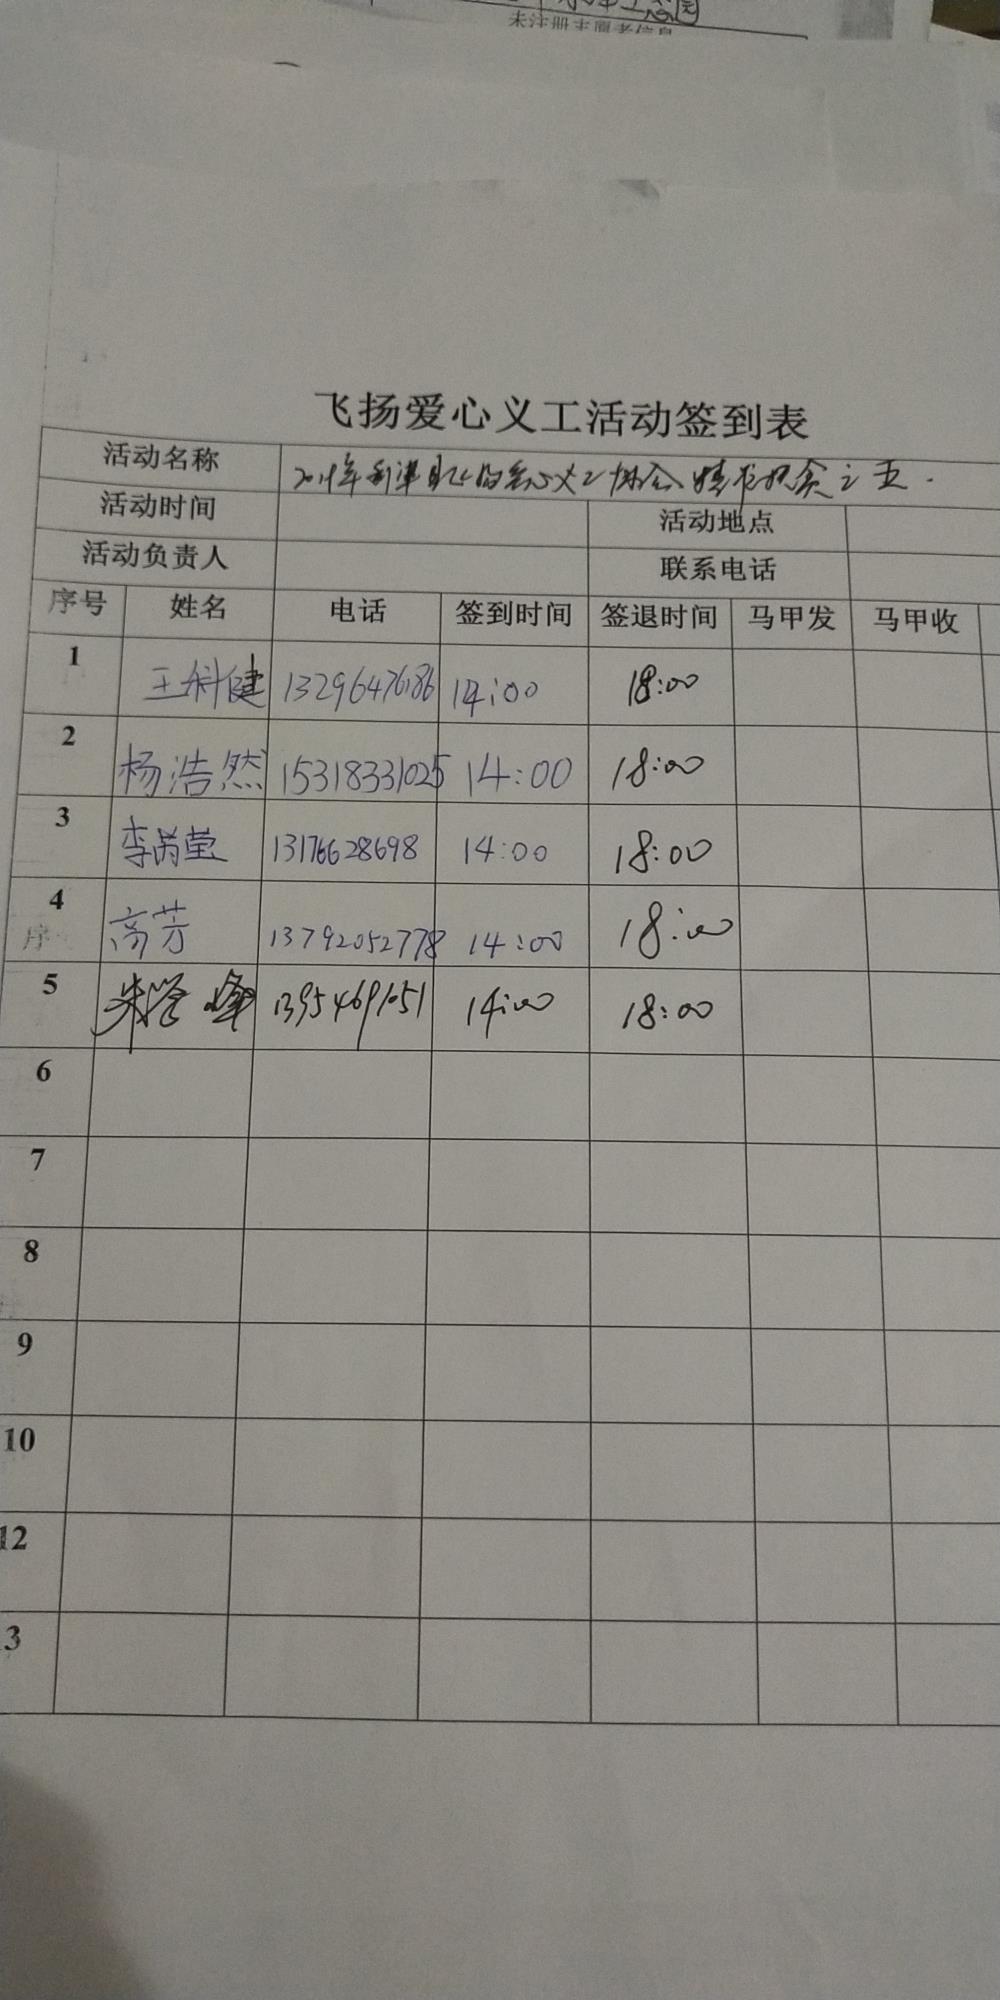 未注册志愿者信息
飞扬爱心义工活动签到表
活动名称 年利津县飞扬爱心义工协会精准扶贫之五.
活动时间 活动地点
活动负责人 联系电话
序号 姓名 电话 签到时间 签退时间 马甲发 马甲收
1 王科健 13296476186 14:00 18:00
2 杨浩然 15318331025 14:00 18:00
3 李芮莹 13176628698 14:00 18:00
4 高芳 13792052778 14:00 18:00
序
5 朱学峰 13954691051 14:00 18:00
6
7
8
9
10
12
3